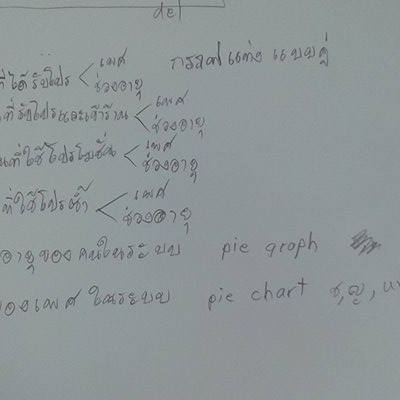 del
ที่ได้รับโปร เพศ การลดแต่งแบบคู่
ช่วงอายุ
ที่รับโปรและเข้าร้าน เพศ
ช่วงอายุ
นที่ใช้โปรโมชั่น เพศ
ช่วงอายุ
ที่ใช้โปรซ้ำ เพศ
ช่วงอายุ
อายุของคนในระบบ pie graph
ของเพศในระบบ pie chart ช,ญ,